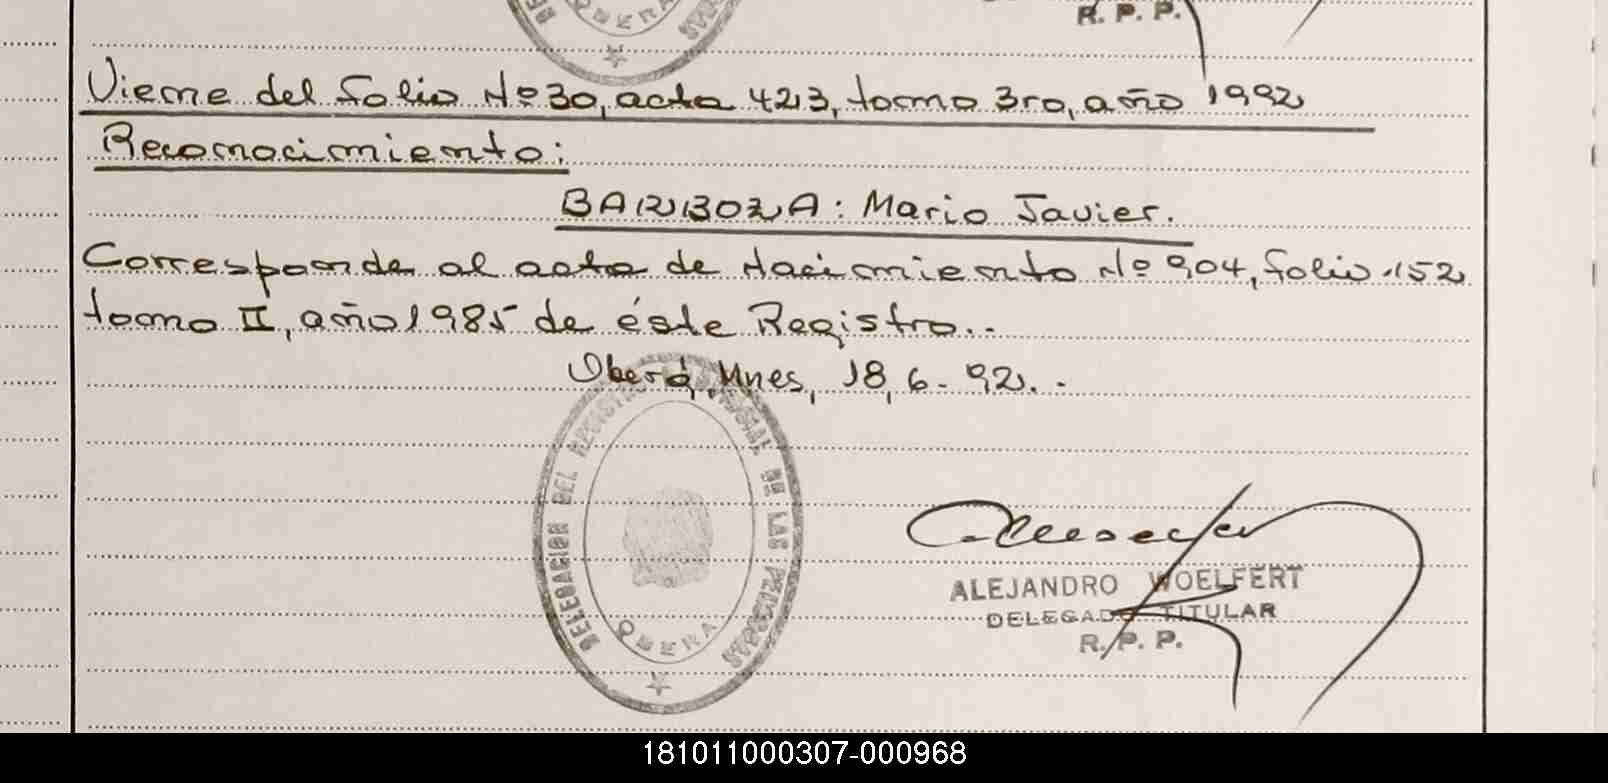 R. P. P.
OBERA
Viene del folio Nº 30, acta 423, tomo 3ro, año 1992
Reconocimiento:
BARBOZA: Mario Javier.
Corresponde al acta de Nacimiento Nº 904, folio 152
tomo II, año 1985 de éste Registro..
Oberá, Mnes, 18, 6-92..
DELEGACION DEL REGISTRO PROVINCIAL DE LAS PERSONAS
OBERA
ALEJANDRO WOELFERT
DELEGADO TITULAR
R. P. P.
181011000307-000968